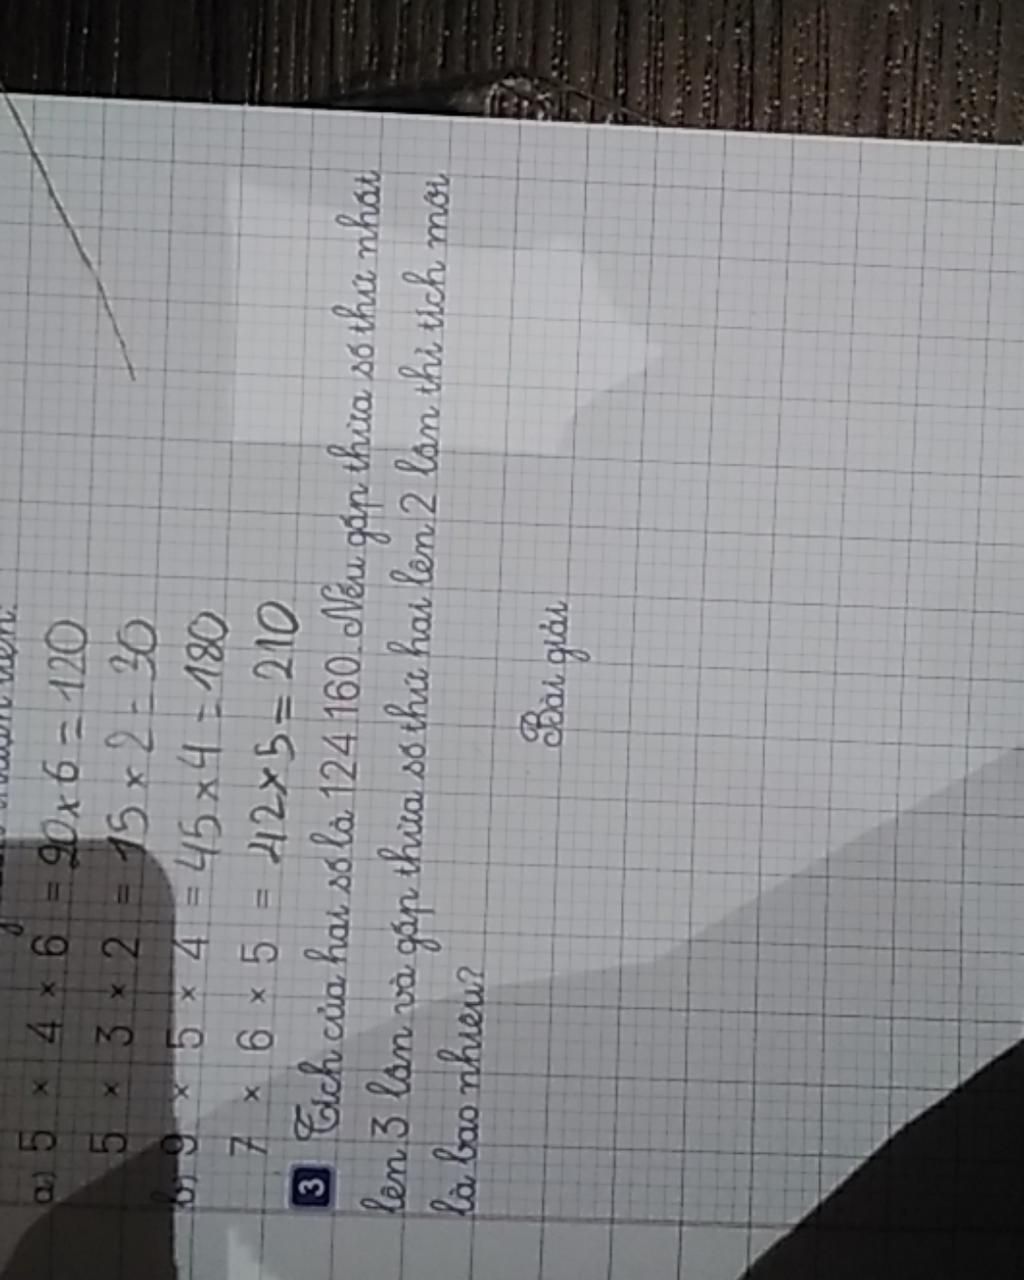 a) 5 × 4 × 6 = 20 × 6 = 120
5 × 3 × 2 = 15 × 2 = 30
b) 9 × 5 × 4 = 45 × 4 = 180
7 × 6 × 5 = 42 × 5 = 210
3 Tích của hai số là 124 160. Nếu gấp thừa số thứ nhất
lên 3 lần và gấp thừa số thứ hai lên 2 lần thì tích mới
là bao nhiêu?
Bài giải